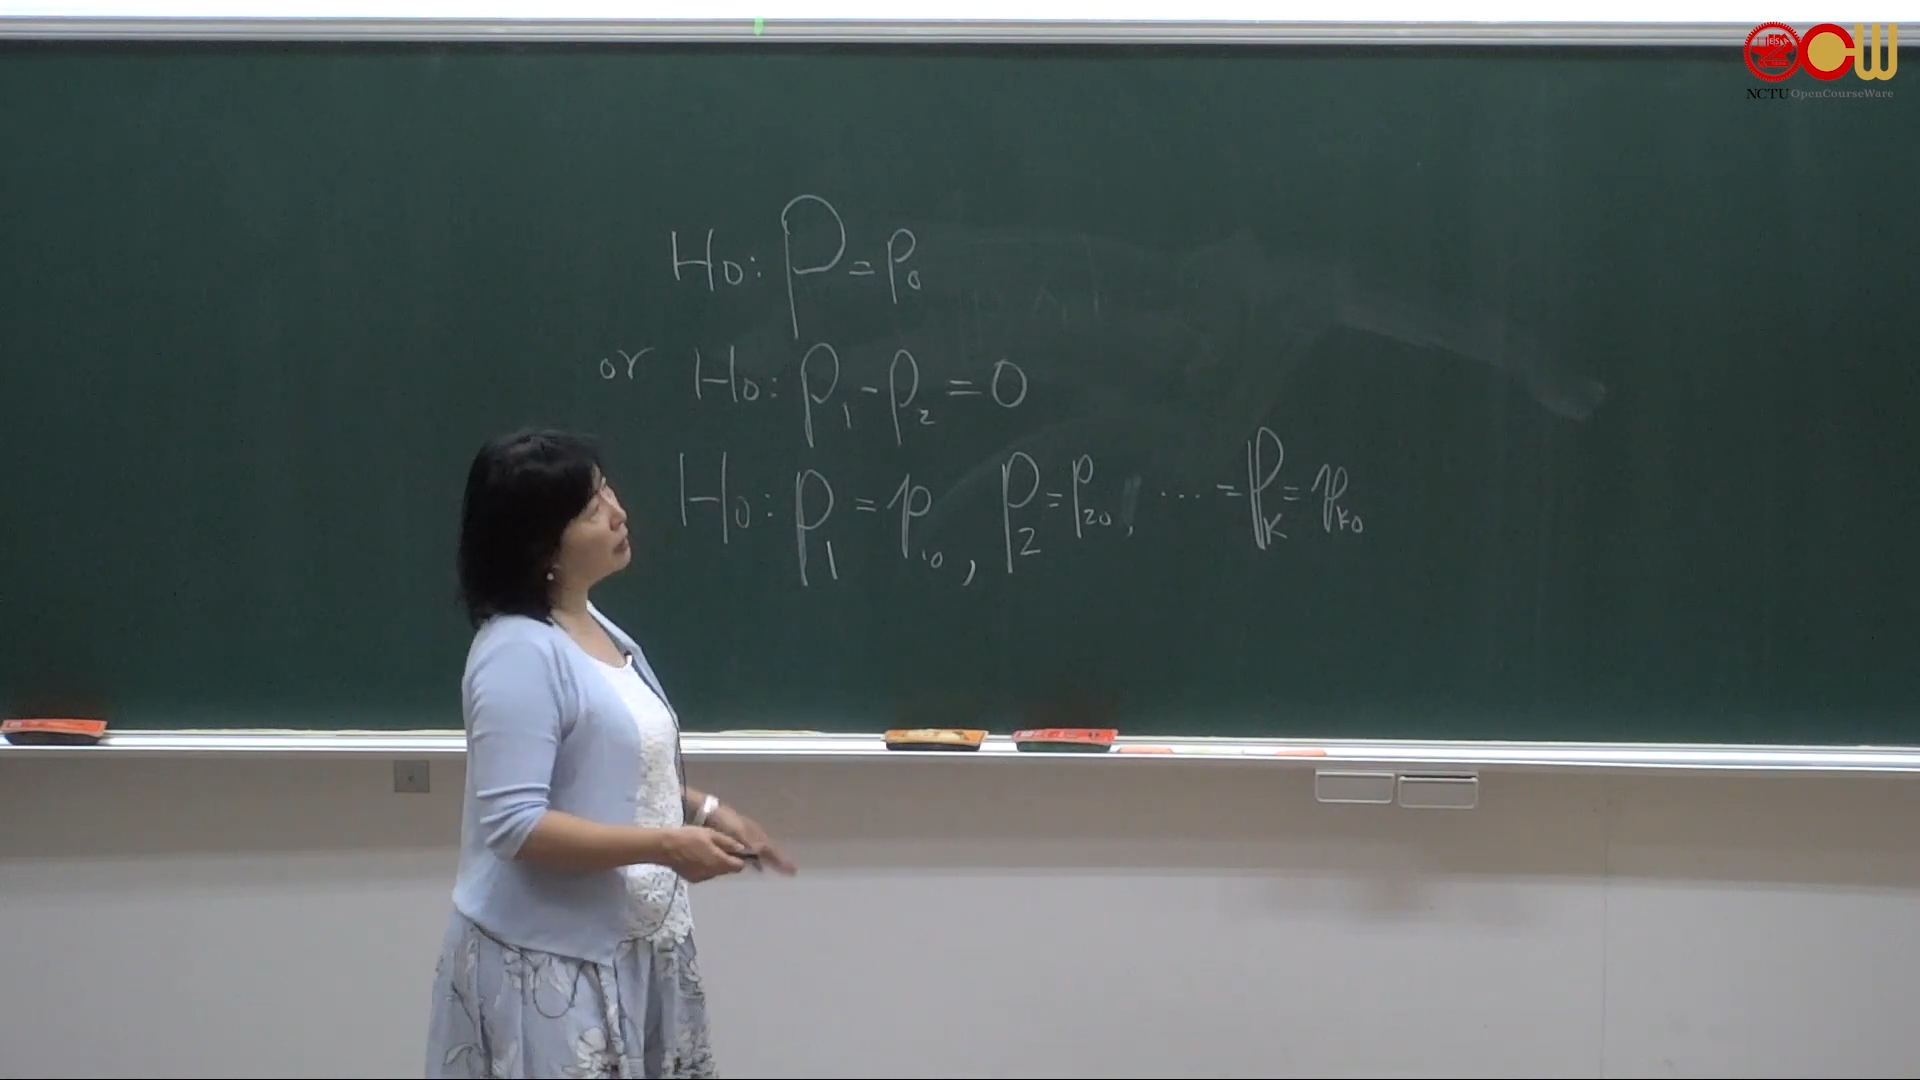 NCTU OpenCourseWare
H0: P = p0
or H0: p1 - p2 = 0
H0: p1 = p10, p2 = p20, .... = pK = pK0